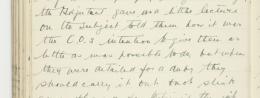 the Adjutant gave and little lecture
on the subject told them how it was
the C.O's intention to give them as
little as was possible to do but when
they were detailed for a duty they
should carry it out